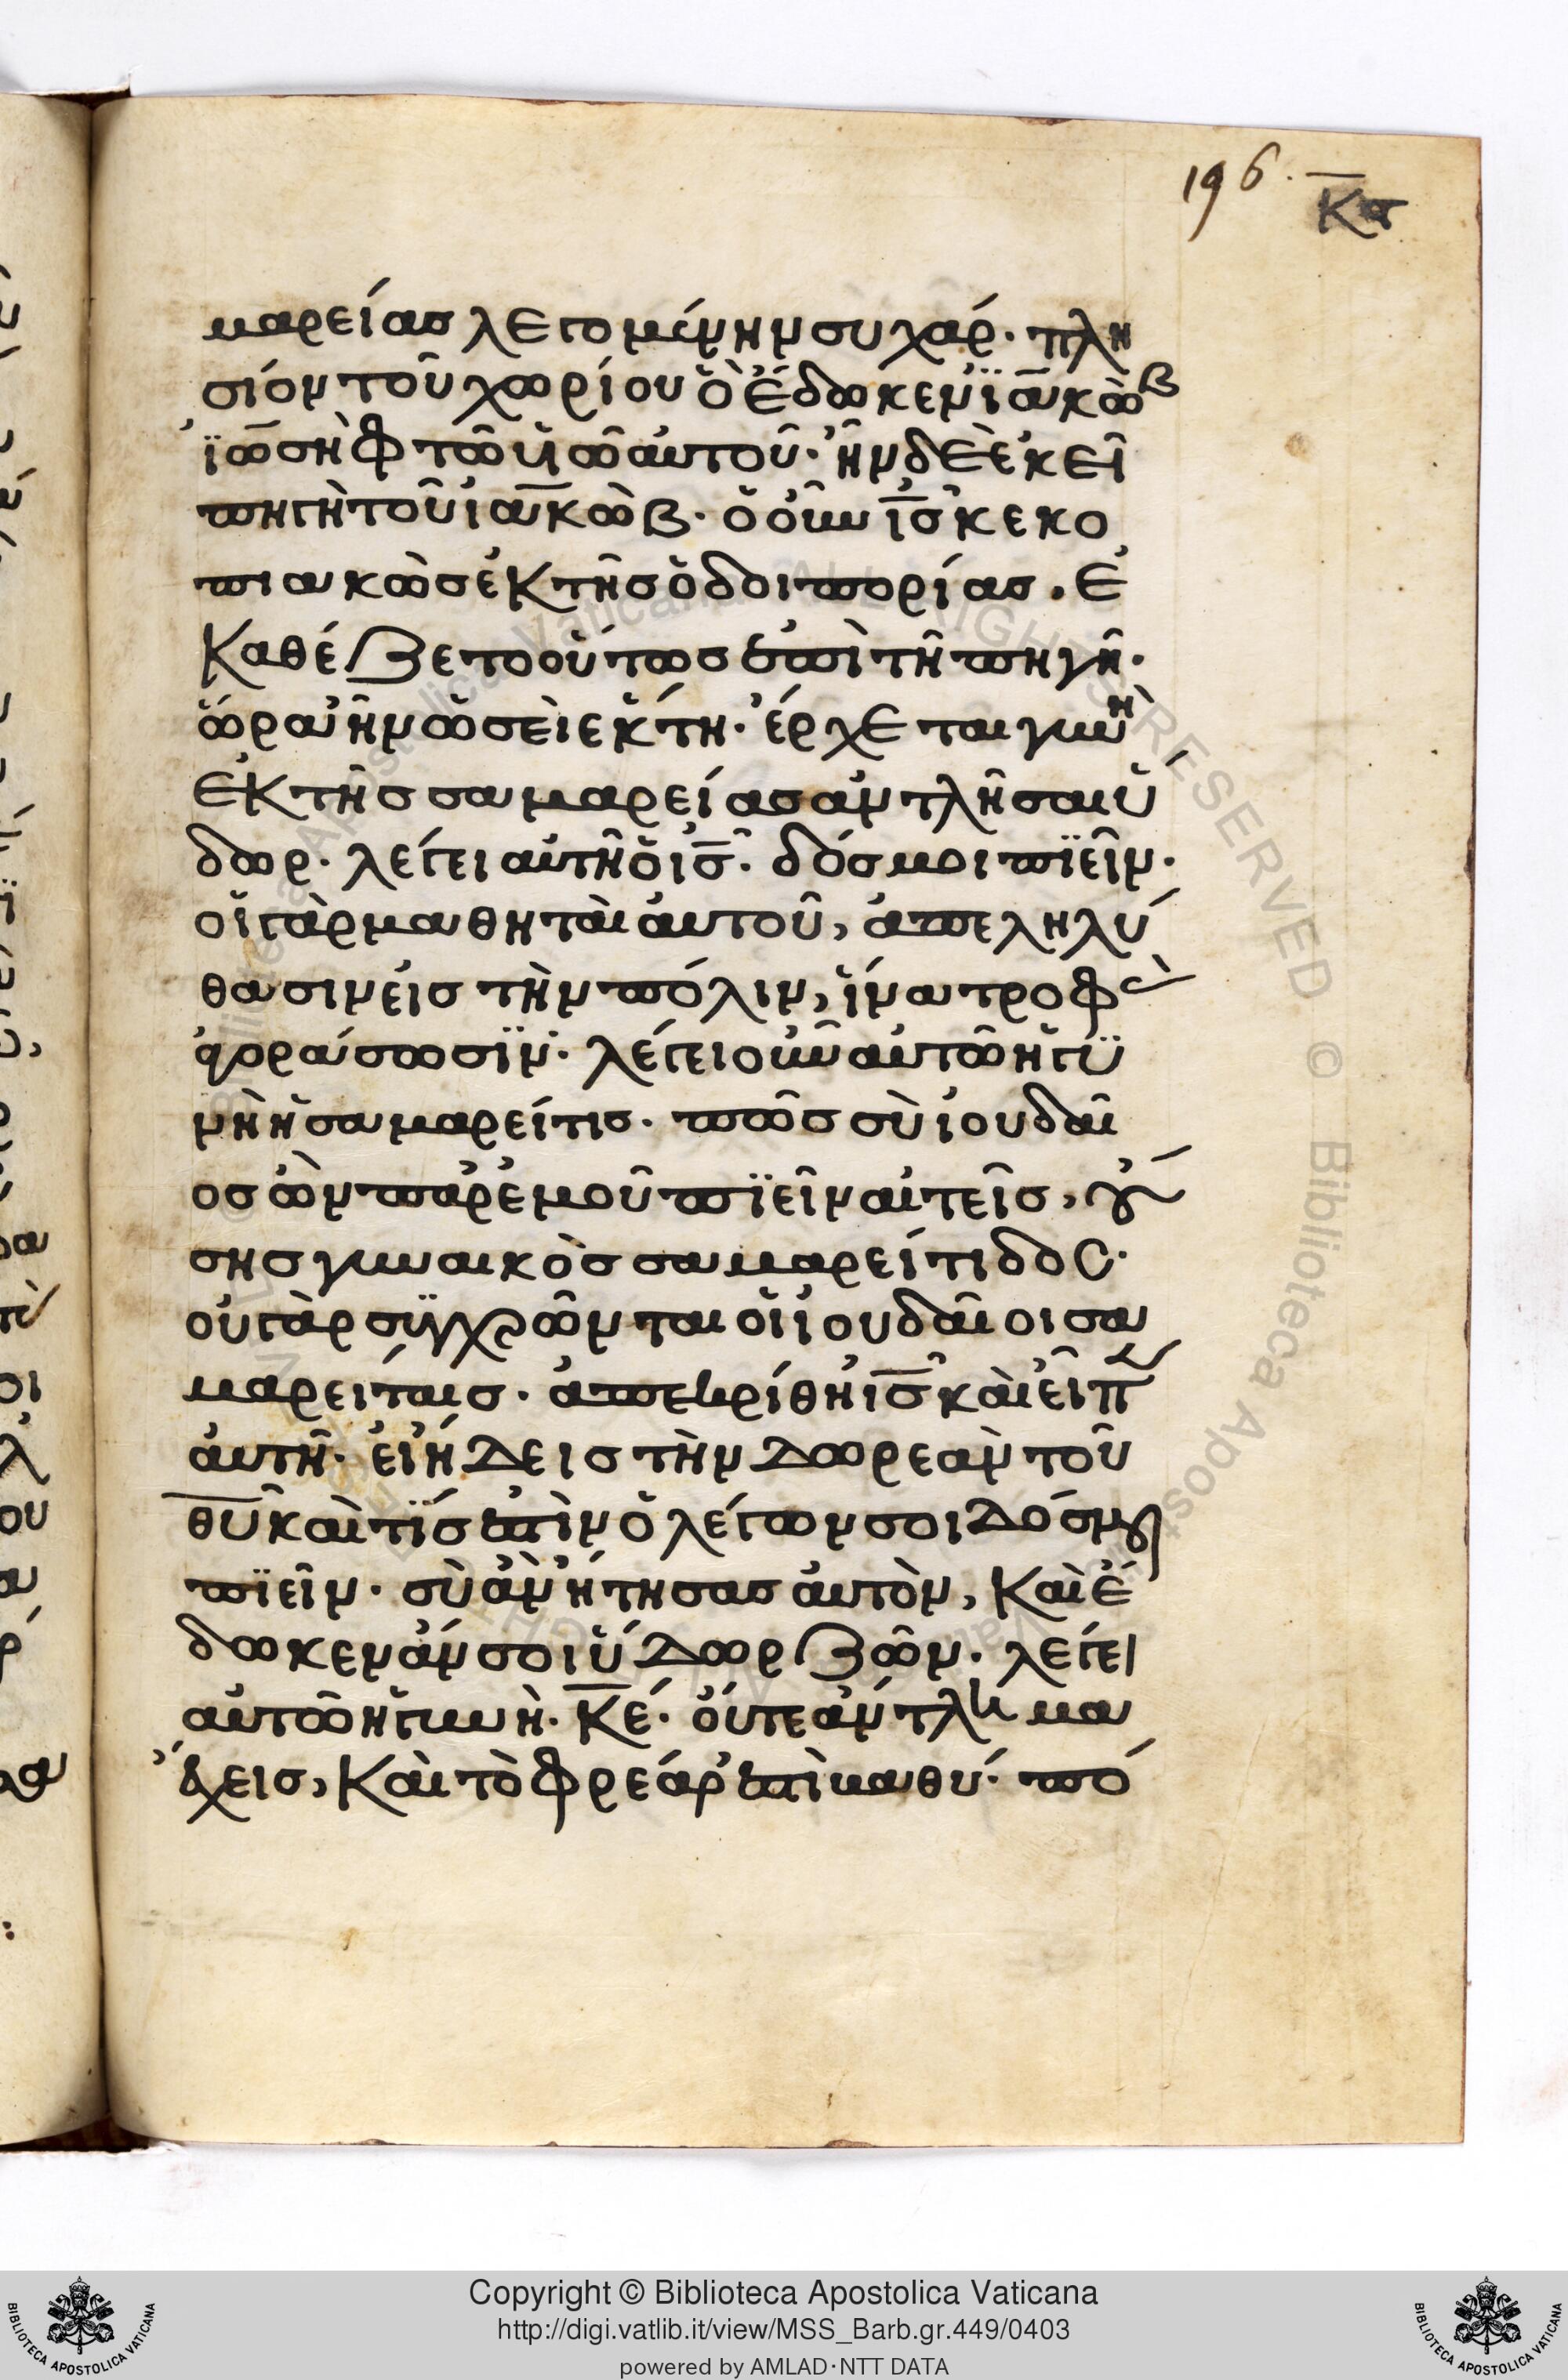 196.
κϛ
μαρείας λεγομένην συχάρ· πλη
σίον τοῦ χωρίου ὃ ἔδωκεν ἰακὼβ
ἰωσὴφ τῶ υἱῶ αὐτοῦ· ἦν δὲ ἐκεῖ
πηγὴ τοῦ ἰακὼβ· ὁ οὖν ις κεκο
πιακὼς ἐκ τῆς ὁδοιπορίας. ἐ
καθέζετο οὕτως ἐπὶ τῆ πηγῆ·
ὥρα ἦν ὡσεὶ ἕκτη· ἔρχεται γυνὴ
ἐκ τῆς σαμαρείας ἀντλῆσαι ὕ
δωρ· λέγει αὐτῆ ὁ ις· δός μοι πιεῖν·
οἱ γὰρ μαθηταὶ αὐτοῦ, ἀπεληλύ
θασιν εἰς τὴν πόλιν, ἵνα τροφὰς
ἀγοράσωσιν· λέγει οὖν αὐτῶ ἡ γυ
νὴ ἡ σαμαρείτις· πῶς σὺ ἰουδαῖ
ος ὢν παρ' ἐμοῦ πιεῖν αἰτεῖς, οὔ
σης γυναικὸς σαμαρείτιδος·
οὐ γὰρ συγχρῶνται οἱ ἰουδαῖοι σα
μαρείταις· ἀπεκρίθη ις καὶ εἶπεν
αὐτῆ· εἰ ἤδεις τὴν δωρεὰν τοῦ
θυ καὶ τίς ἐστὶν ὁ λέγων σοι δός μοι
πιεῖν· σὺ ἂν ἤτησας αὐτὸν, καὶ ἔ
δωκεν ἄν σοι ὕδωρ ζῶν· λέγει
αὐτῶ ἡ γυνὴ· κε· οὔτε ἄντλημα
ἔχεις, καὶ τὸ φρέαρ ἐστὶ βαθύ· πό
Copyright © Biblioteca Apostolica Vaticana
http://digi.vatlib.it/view/MSS_Barb.gr.449/0403
powered by AMLAD·NTT DATA